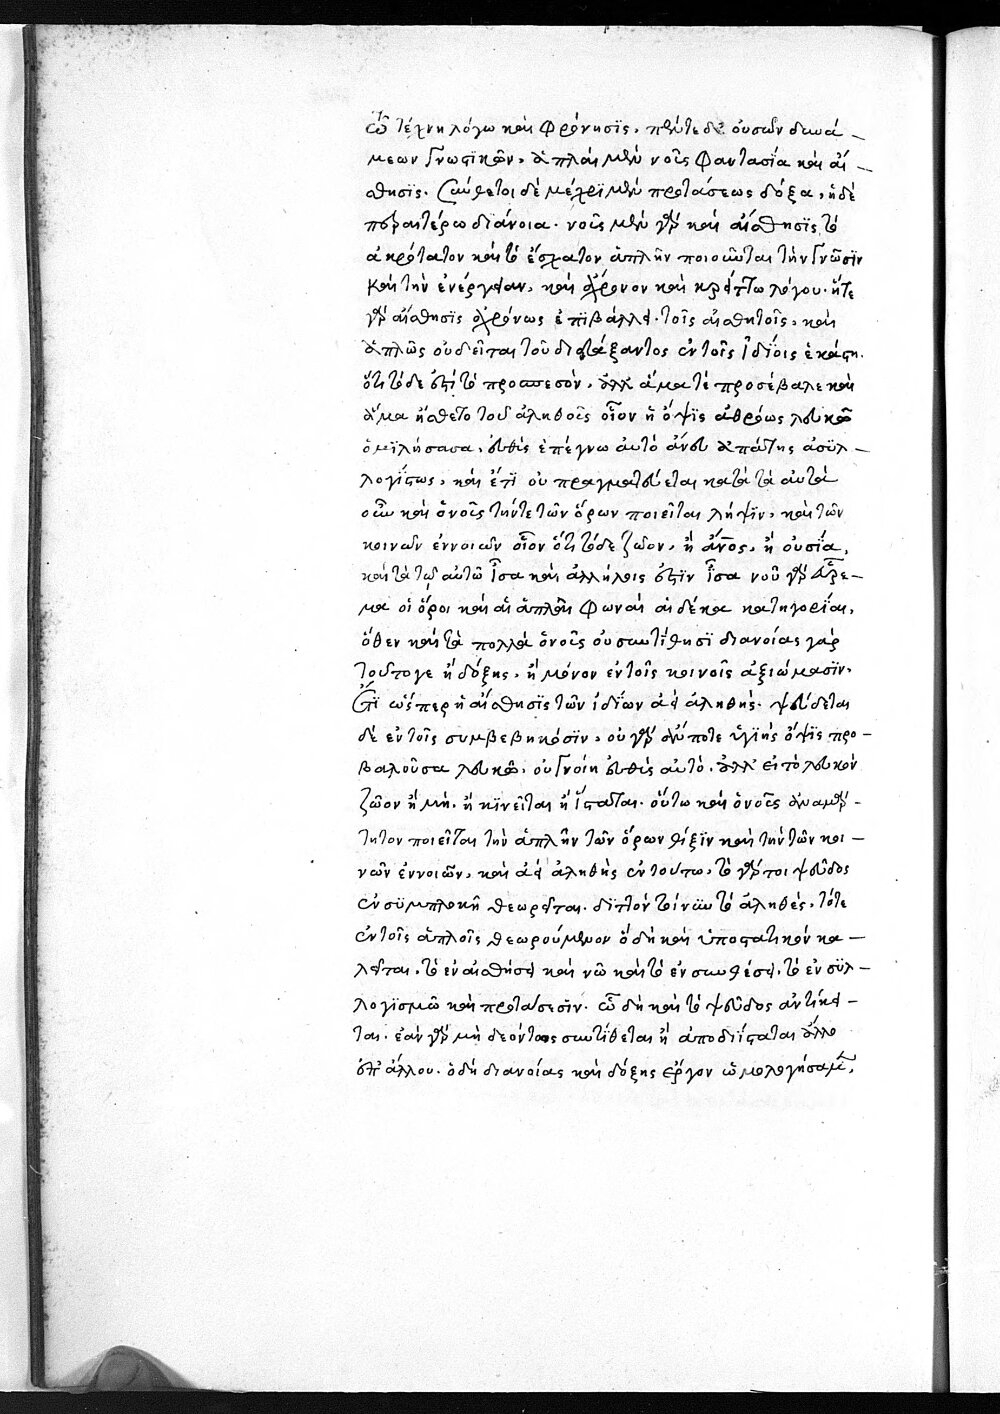 ὧ τέχνη λόγω καὶ φρόνησϊς, πέντε δὲ οὐσῶν δυνά-
μεων γνωστικῶν, ἁπλαῖ μὲν νοῦς φαντασία καὶ αἴ-
σθησϊς. σύνθετοι δὲ μέχρϊ μὲν προτάσεως δόξα, ἡ δὲ
περαιτέρω διάνοια. νοῦς μὲν γὰρ καὶ αἴσθησϊς τὸ
ἀκρότατον καὶ τὸ ἔσχατον ἁπλῆν ποιοῦνται τὴν γνῶσϊν
καὶ τὴν ἐνέργειαν, καὶ ἄχρονον καὶ κρείττω λόγου. ἥτε
γὰρ αἴσθησϊς ἀχρόνως ἐπϊβάλλει τοῖς αἰσθητοῖς, καὶ
ἁπλῶς οὐ δεῖται τοῦ διατάξαντος ἐν τοῖς ἰδίοις ἑκάστη.
ὅτι τόδε ἐστὶ τὸ προσπεσὸν, ἀλλ' ἅμα τὲ προσέβαλε καὶ
ἅμα ἤσθετο τοῦ ἀληθοῦς οἷον ἡ ὄψϊς ἀθρόως λευκῶ
ὁμϊλήσασα, εὐθὺς ἐπέγνω αὐτὸ ἄνευ ἀπάτης ἀσϋλ-
λογίστως, καὶ ἔτϊ οὐ πραγματεύεται κατὰ τὰ αὐτὰ
οὖν καὶ ὁ νοῦς τήντε τῶν ὅρων ποιεῖται λῆψϊν, καὶ τῶν
κοινῶν ἐννοιῶν οἷον ὅτι τόδε ζῶον, ἢ ἄνος, ἢ οὐσία,
καὶ τὰ τῶ αὐτῶ ἴσα καὶ ἀλλήλοις ἐστϊν ἴσα νοῦ γὰρ
μα οἱ ὅροι καὶ αἱ ἁπλαῖ φωναὶ αἱ δέκα κατηγορίαι,
ὅθεν καὶ τὰ πολλὰ ὁ νοῦς οὐ συντίθησϊ διανοίας γὰρ
τοῦτογε ἢ δόξης, ἢ μόνον ἐν τοῖς κοινοῖς ἀξιώμασϊν.
ἔτϊ ὥσπερ ἡ αἴσθησϊς τῶν ἰδίων ἀεὶ ἀληθὴς. ψεύδεται
δὲ ἐν τοῖς συμβεβηκόσϊν, οὐ γὰρ ἄν ποτε ὑγιὴς ὄψϊς προ-
βαλοῦσα λευκῶ, οὐ γνοίη εὐθὺς αὐτὸ. ἀλλ' εἰ τὸ λευκὸν
ζῶον ἢ μὴ. ἢ κϊνεῖται ἢ ἵσταται. οὕτω καὶ ὁ νοῦς ἀναμάρ-
τητον ποιεῖται τὴν ἁπλῆν τῶν ὅρων θίξϊν καὶ τὴν τῶν κοι-
νῶν ἐννοιῶν, καὶ ἀεὶ ἀληθὴς ἐν τούτω, τὸ γάρ τοι ψεῦδος
ἐν σϋμπλοκῆ θεωρεῖται. διττὸν τοίνϋν τὸ ἀληθές, τότε
ἐν τοῖς ἁπλοῖς θεωρούμενον ὃ δὴ καὶ ὑποστατικὸν κα-
λεῖται, τὸ ἐν αἰσθήσει καὶ νῶ καὶ τὸ ἐν συνθέσει, τὸ ἐν σϋλ-
λογϊσμῶ καὶ προτάσεσϊν. ὧ δὴ καὶ τὸ ψεῦδος ἀντίκει-
ται. ἐὰν γὰρ μὴ δεόντως συντίθεται ἢ ἀποδιΐσταται ἄλλο
ἀπ' ἄλλου. ὃ δὴ διανοίας καὶ δόξης ἔργον ὡμολογήσαμεν,